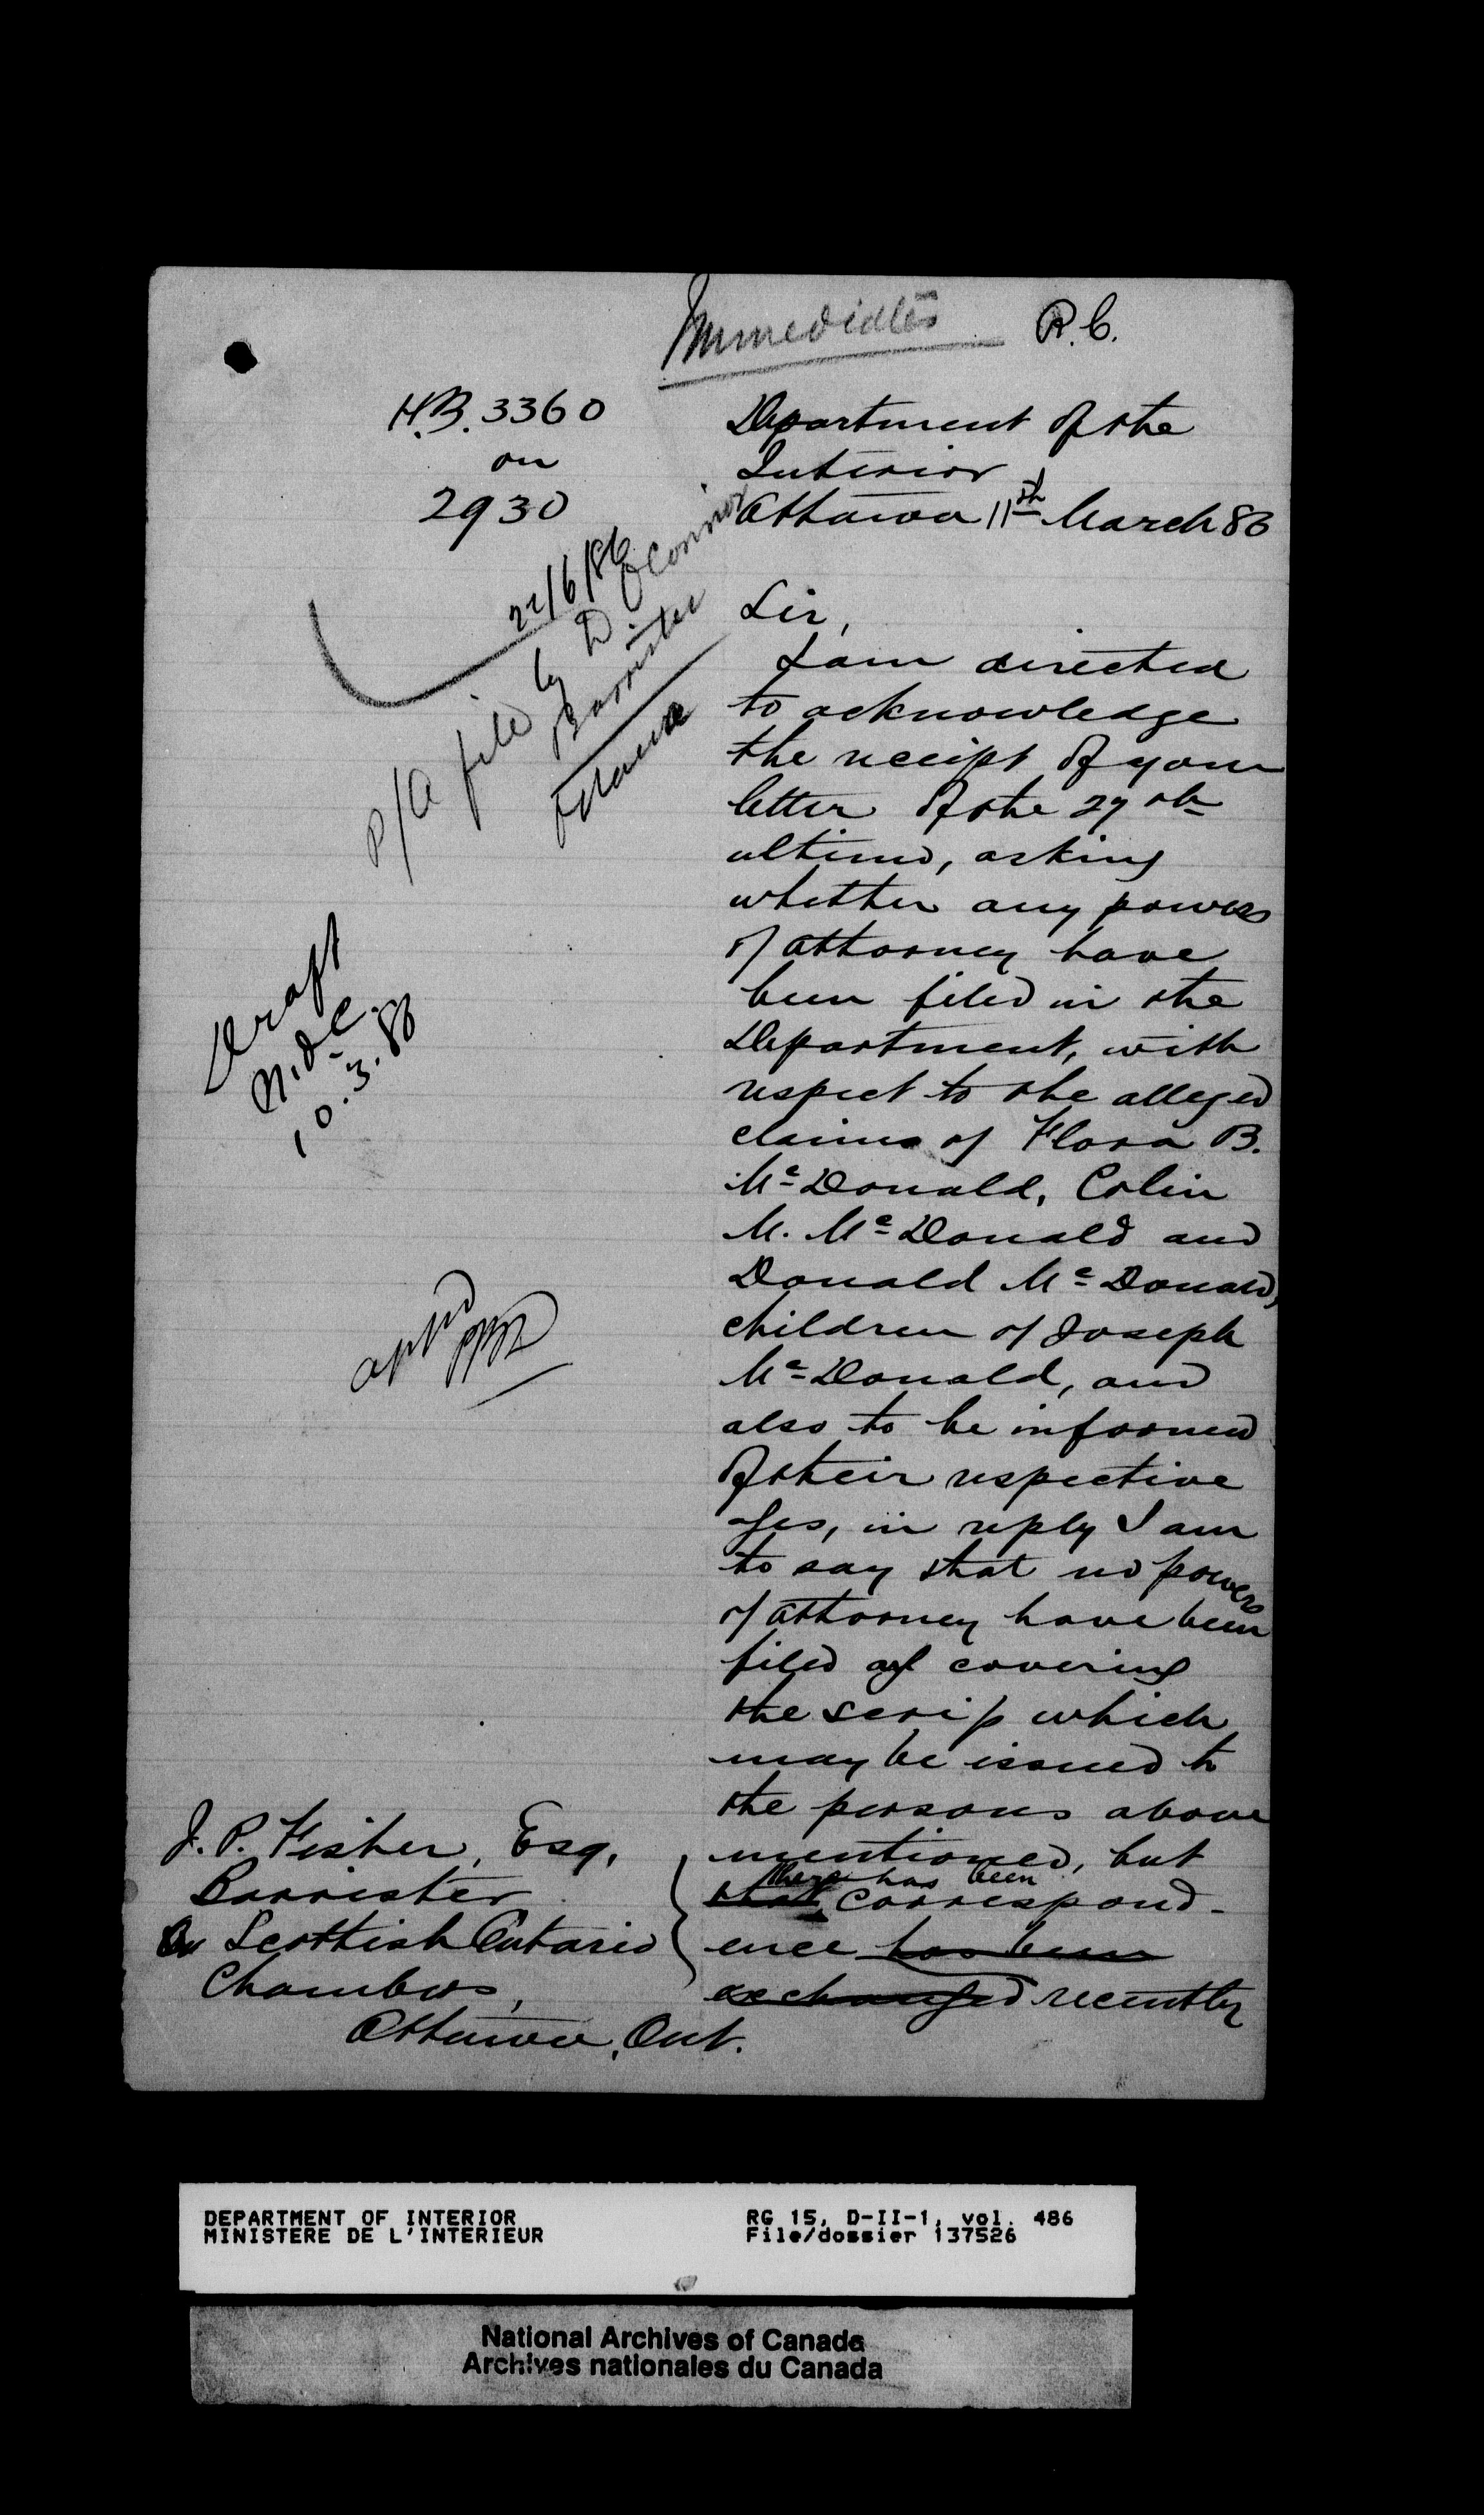 Immediate R.C.
H.B. 3360
on
2930
Department of the
Interior
Ottawa 11th March 86
22/6/86
P/A filed by D. O'Connor
Barrister
Ottawa
Draft
N.O.C.
10.3.86
appd
Sir,
I am directed
to acknowledge
the receipt of your
letter of the 27th
ultimo, asking
whether any powers
of attorney have
been filed in the
Department, with
respect to the alleged
claims of Flora B.
McDonald, Colin
M. McDonald and
Donald McDonald,
children of Joseph
McDonald, and
also to be informed
of their respective
ages, in reply I am
to say that no powers
of attorney have been
filed covering
the scrip which
may be issued to
the persons above
mentioned, but
there has been
that correspond-
ence has been
exchanged recently
J. P. Fisher, Esq.
Barrister
Scottish Ontario
Chambers,
Ottawa, Ont.
DEPARTMENT OF INTERIOR
MINISTERE DE L'INTERIEUR
RG 15, D-II-1, vol. 486
File/dossier 137526
National Archives of Canada
Archives nationales du Canada